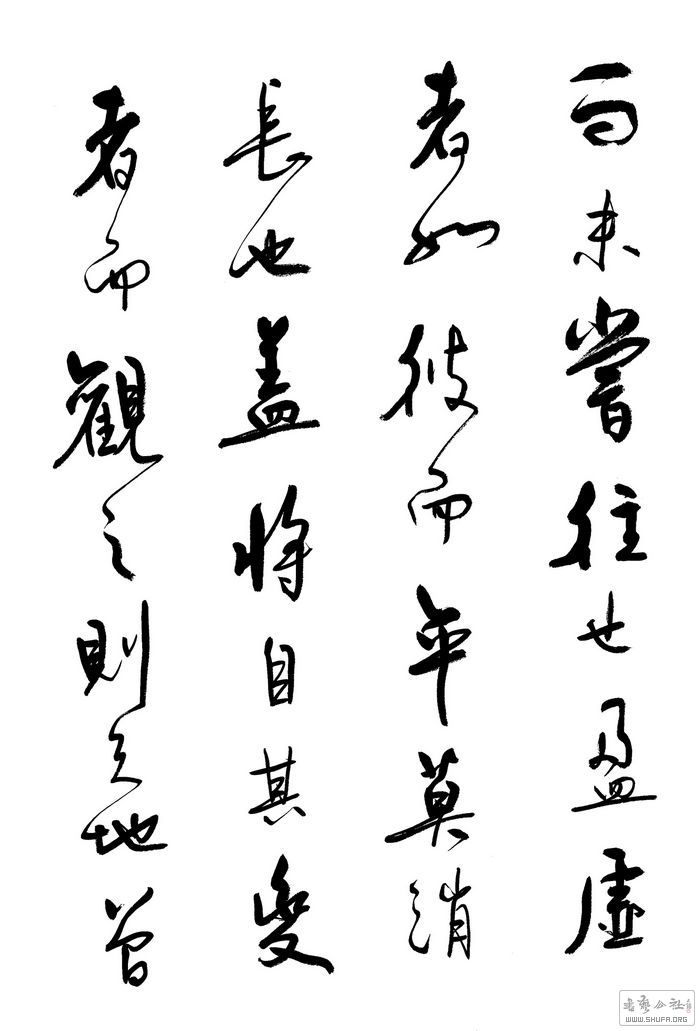 而未嘗往也盈虛
者如彼而卒莫消
長也盖将自其變
者而觀之則天地曾
書藝公社
WWW.SHUFA.ORG